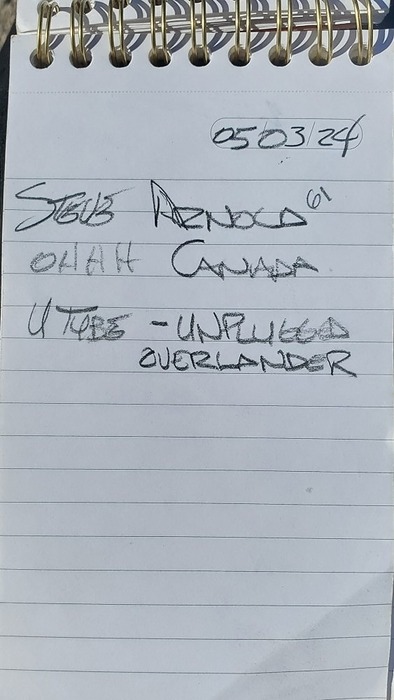 05/03/24
STEVE ARNOLD 61
OHAH CANADA
U TUBE - UNPLUGGED
OVERLANDER